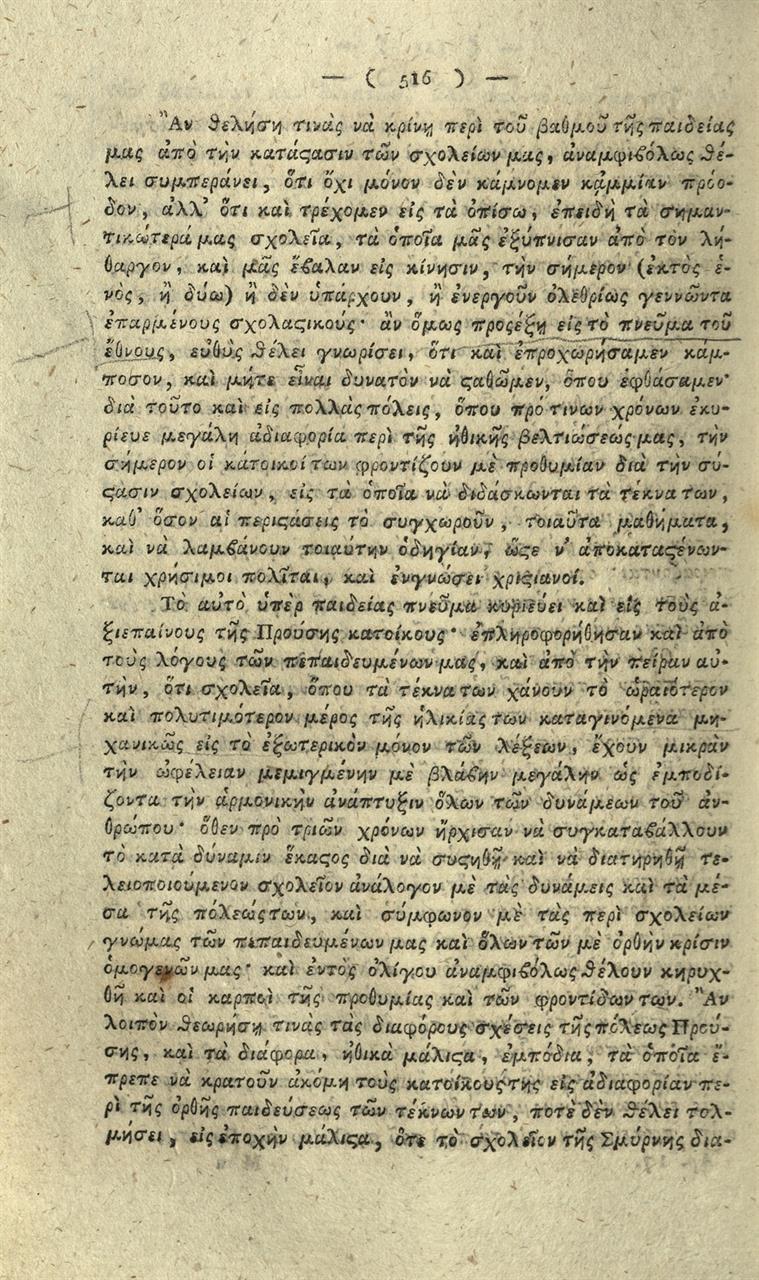 — ( 516 ) —
Ἂν θελήσῃ τινὰς νὰ κρίνῃ περὶ τοῦ βαθμοῦ τῆς παιδείας
μας ἀπὸ τὴν κατάϛασιν τῶν σχολείων μας, ἀναμφιβόλως θέ-
λει συμπεράνει, ὅτι ὄχι μόνον δὲν κάμνομεν κᾀμμίαν πρόο-
δον, ἀλλ' ὅτι καὶ τρέχομεν εἰς τὰ ὀπίσω, ἐπειδὴ τὰ σημαν-
τικώτερά μας σχολεῖα, τὰ ὁποῖα μᾶς ἐξύπνισαν ἀπὸ τὸν λή-
θαργον, καὶ μᾶς ἔβαλαν εἰς κίνησιν, τὴν σήμερον (ἐκτὸς ἑ-
νὸς, ἢ δύω) ἢ δὲν ὑπάρχουν, ἢ ἐνεργοῦν ὀλεθρίως γεννῶντα
ἐπαρμένους σχολαϛικούς· ἂν ὅμως προςέξῃ εἰς τὸ πνεῦμα τοῦ
ἔθνους, εὐθὺς θέλει γνωρίσει, ὅτι καὶ ἐπροχωρήσαμεν κάμ-
ποσον, καὶ μήτε εἶναι δυνατὸν νὰ ϛαθῶμεν, ὅπου ἐφθάσαμεν·
διὰ τοῦτο καὶ εἰς πολλὰς πόλεις, ὅπου πρό τινων χρόνων ἐκυ-
ρίευε μεγάλη ἀδιαφορία περὶ τῆς ἠθικῆς βελτιώσεώς μας, τὴν
σήμερον οἱ κάτοικοί των φροντίζουν μὲ προθυμίαν διὰ τὴν σύ-
ϛασιν σχολείων, εἰς τὰ ὁποῖα νὰ διδάσκωνται τὰ τέκνα των,
καθ' ὅσον αἱ περιϛάσεις τὸ συγχωροῦν, τοιαῦτα μαθήματα,
καὶ νὰ λαμβάνουν τοιαύτην ὁδηγίαν, ὥϛε ν' ἀποκαταϛένων-
ται χρήσιμοι πολῖται, καὶ ἐνγνώσει χριϛιανοί.
Τὸ αὐτὸ ὑπὲρ παιδείας πνεῦμα κυριεύει καὶ εἰς τοὺς ἀ-
ξιεπαίνους τῆς Προύσης κατοίκους· ἐπληροφορήθησαν καὶ ἀπὸ
τοὺς λόγους τῶν πεπαιδευμένων μας, καὶ ἀπὸ τὴν πεῖραν αὐ-
τὴν, ὅτι σχολεῖα, ὅπου τὰ τέκνα των χάνουν τὸ ὡραιότερον
καὶ πολυτιμότερον μέρος τῆς ἡλικίας των καταγινόμενα μη-
χανικῶς εἰς τὸ ἐξωτερικὸν μόνον τῶν λέξεων, ἔχουν μικρὰν
τὴν ὠφέλειαν μεμιγμένην μὲ βλάβην μεγάλην ὡς ἐμποδί-
ζοντα τὴν ἁρμονικὴν ἀνάπτυξιν ὅλων τῶν δυνάμεων τοῦ ἀν-
θρώπου· ὅθεν πρὸ τριῶν χρόνων ἤρχισαν νὰ συγκαταβάλλουν
τὸ κατὰ δύναμιν ἕκαϛος διὰ νὰ συϛηθῇ καὶ νὰ διατηρηθῇ τε-
λειοποιούμενον σχολεῖον ἀνάλογον μὲ τὰς δυνάμεις καὶ τὰ μέ-
σα τῆς πόλεώς των, καὶ σύμφωνον μὲ τὰς περὶ σχολείων
γνώμας τῶν πεπαιδευμένων μας καὶ ὅλων τῶν μὲ ὀρθὴν κρίσιν
ὁμογενῶν μας· καὶ ἐντὸς ὀλίγου ἀναμφιβόλως θέλουν κηρυχ-
θῆ καὶ οἱ καρποὶ τῆς προθυμίας καὶ τῶν φροντίδων των. Ἂν
λοιπὸν θεωρήσῃ τινὰς τὰς διαφόρους σχέσεις τῆς πόλεως Πρού-
σης, καὶ τὰ διάφορα, ἠθικὰ μάλιϛα, ἐμπόδια, τὰ ὁποῖα ἔ-
πρεπε νὰ κρατοῦν ἀκόμη τοὺς κατοίκους της εἰς ἀδιαφορίαν πε-
ρὶ τῆς ὀρθῆς παιδεύσεως τῶν τέκνων των, ποτὲ δὲν θέλει τολ-
μήσει, εἰς ἐποχὴν μάλιϛα, ὅτε τὸ σχολεῖον τῆς Σμύρνης δια-